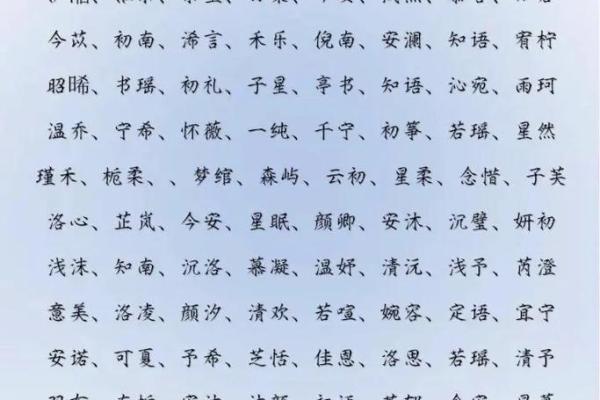 今苡、初南、浠言、禾乐、倪南、安澜、知语、宥柠
昭晞、书瑶、初礼、子星、亭书、知语、沁宛、雨珂
温乔、宁希、怀薇、一纯、千宁、初筝、若瑶、星然
瑾禾、栀柔、、梦绾、森屿、云初、星柔、念惜、子芙
洛心、芷岚、今安、星眠、颜卿、安沐、沉璧、妍初
浅沫、知南、沉洛、慕凝、温妤、清沅、浅予、芮澄
意美、洛凌、颜汐、清欢、若喧、婉容、定语、宜宁
安诺、可夏、予希、芝恬、佳恩、洛思、若瑶、清予